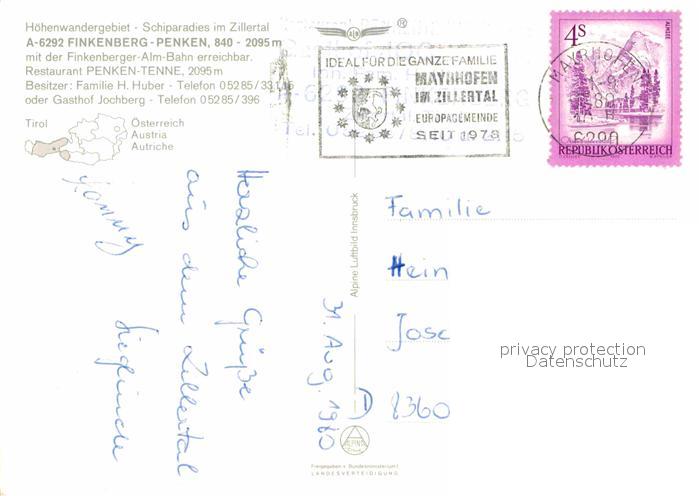 Höhenwandergebiet - Schiparadies im Zillertal
A-6292 FINKENBERG-PENKEN, 840 - 2095 m
mit der Finkenberger-Alm-Bahn erreichbar.
Restaurant PENKEN-TENNE, 2095 m
Besitzer: Familie H. Huber - Telefon 05285/33116
oder Gasthof Jochberg - Telefon 05285/396
Tirol
Österreich
Austria
Autriche
®
IDEAL FÜR DIE GANZE FAMILIE
MAYRHOFEN
IM ZILLERTAL
EUROPAGEMEINDE
SEIT 1978
MAYRHOFEN
6290
4 S
ALMSEE
REPUBLIK ÖSTERREICH
31. Aug. 1980
Herzliche Grüße
aus dem Zillertal
Sieglinde
Alpine Luftbild Innsbruck
Familie
Hein
Jose
8360
privacy protection
Datenschutz
ALPINE
Freigegeben v. Bundesministerium f.
LANDESVERTEIDIGUNG